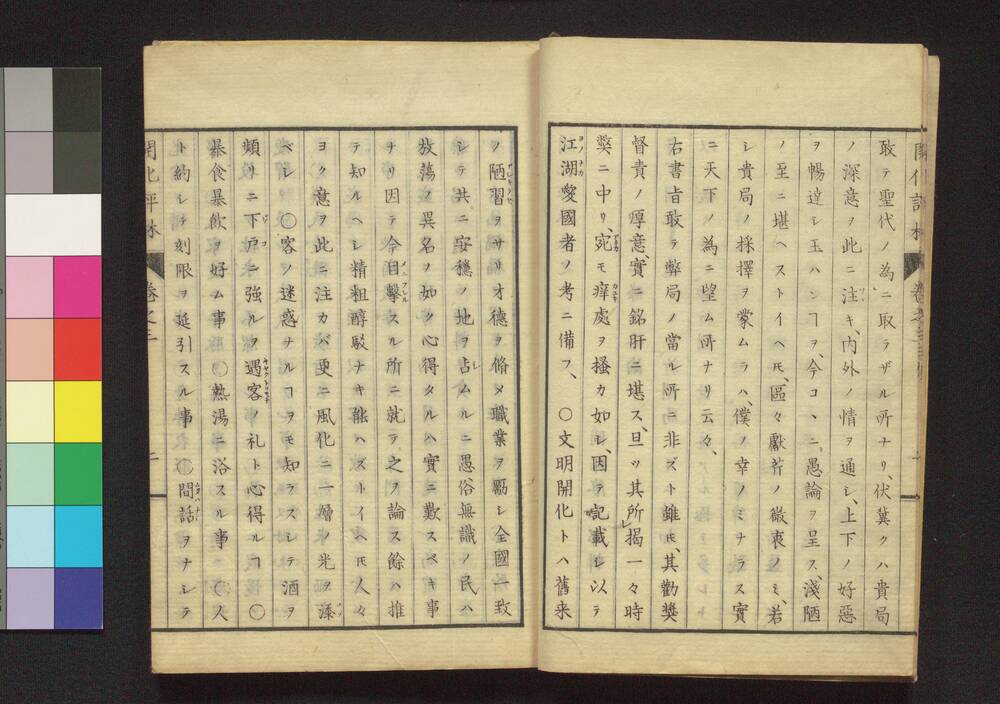 敢テ聖代ノ為ニ取ラザル所ナリ、伏冀クハ貴局
ノ深意ヲ此ニ注キ、内外ノ情ヲ通シ、上下ノ好惡
ヲ暢達シ玉ハンヿヲ、今コヽニ愚論ヲ呈ス、淺陋
ノ至ニ堪ヘストイヘ𪜈、區々獻芹ノ微衷ノミ、若
シ貴局ノ採擇ヲ蒙ムラハ、僕ノ幸ノミナラス實
ニ天下ノ為ニ望ム所ナリ云々、
右書旨敢テ弊局ノ當ル所ニ非ズト雖𪜈、其勸奬
督責ノ厚意、實ニ銘肝ニ堪ス、且ツ其所揭一々時
獘ニ中リ、宛モ癢處ヲ搔カ如シ、因テ記載シ以テ
江湖愛國者ノ考ニ備フ、 〇文明開化トハ舊来
ノ陋習ヲサリオ德ヲ脩メ職業ヲ勵シ全國一致
シテ共ニ安穩ノ地ヲ占ムルニ愚俗無識ノ民ハ
放蕩ノ異名ノ如ク心得タルハ實ニ歎スベキ事
ナリ因テ今目擊スル所ニ就テ之ヲ論ス餘ハ推
テ知ルヘシ精粗醇駁ナキ能ハズトイヘ𪜈人々
ヨク意ヲ此ニ注カバ更ニ風化ニ一層ノ光ヲ添
ベシ 〇客ノ迷惑ナルヿヲモ知ラスシテ酒ヲ
頻リニ下戸ニ強ルヲ遇客ノ礼ト心得ルヿ 〇
暴食暴飲ヲ好ム事 〇熱湯ニ浴スル事 〇人
ト約シテ刻限ヲ延引スル事 〇間話ヲナシテ
開化評林 卷之三 二